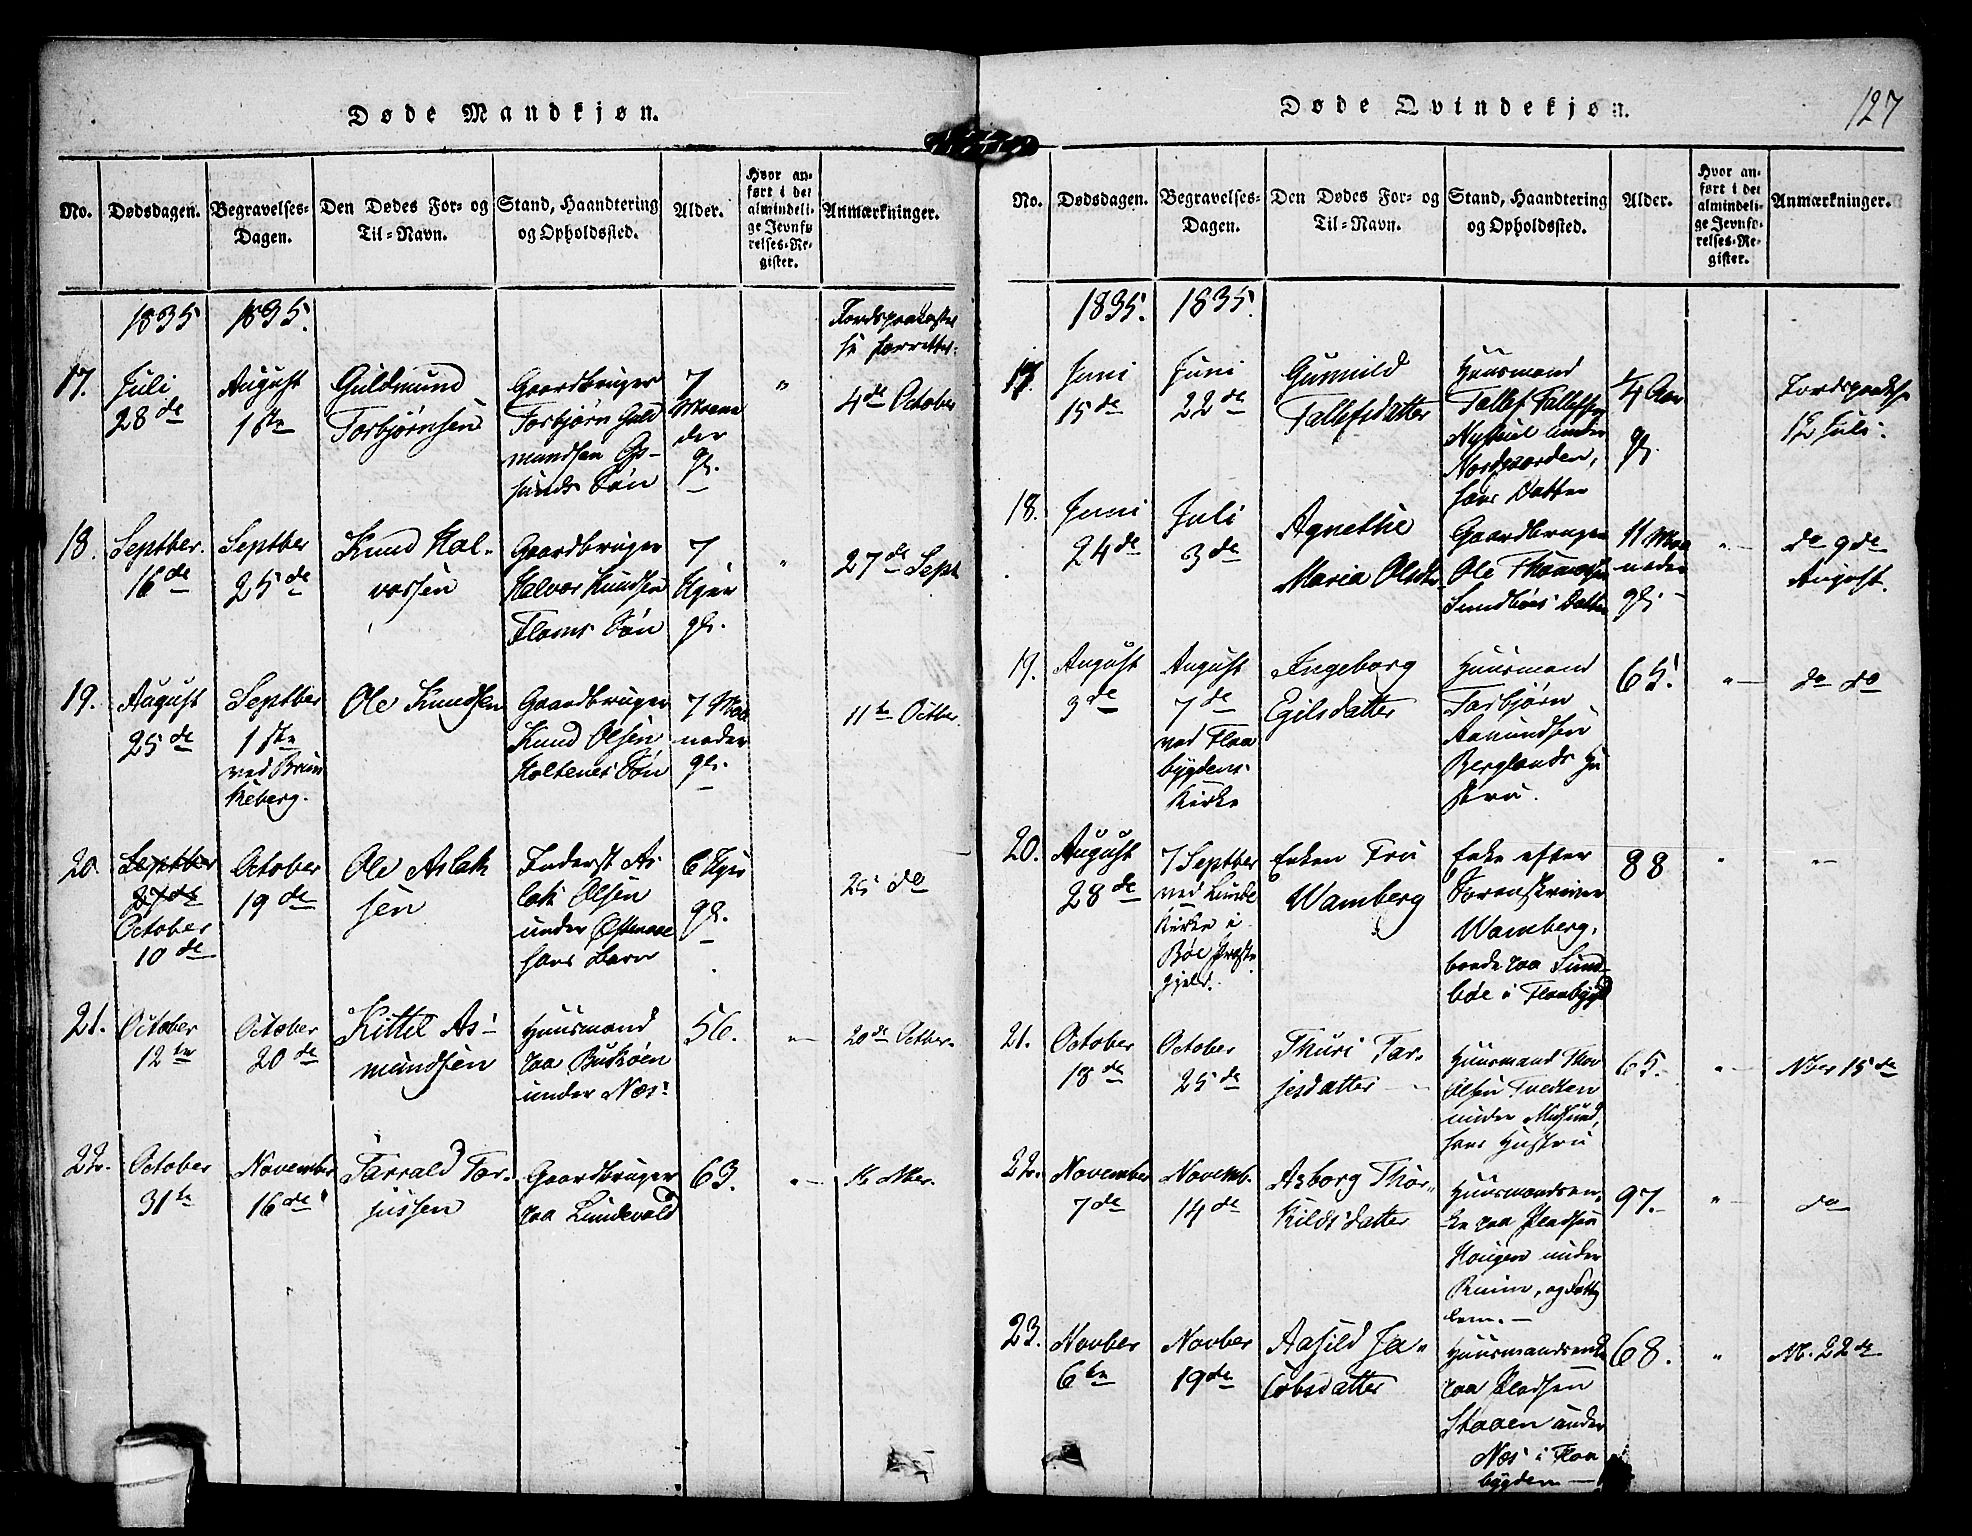 Døde Mandkjøn.
No.
Dødsdagen.
Begravelses-
Dagen.
Den Dødes For- og
Til-Navn.
Stand, Haandtering
og Opholdssted.
Alder.
Hvor an-
ført i det
almindeli-
ge Jevnfø-
relses-Re-
gister.
Anmærkninger.
1835
1835.
17.
Juli
28de
August
Guldmund
Torbjørnsen
Gaardbruger
Torbjørn Guld
mundsen
Søn
7
Maane
der
gl.
"
4de October
18.
Septber.
16de
Septber
25de
Knud Hal-
vorsen
Gaardbruger
Halvor Knudsen
Søn
7
Uger
gl.
"
27de Sept
19.
August
25de
Septber
1ste
ved Brun
keberg.
Ole Knudsen
Gaardbruger
Knud Olsen
Holtenes Søn
7 Maa
neder
gl.
11te Octber.
20.
Septber
27de
October
10de
October
19de
Ole Aslak
sen
Inderst As
lak Olsen
under
hans Barn
6 Uger
gl.
25 do
21.
October
12te
October
20de
Kittil As-
mundsen
Huusmand
paa
under Næs
56.
"
20de Octber.
22.
October
31te
November
16de
Tarrald Tar-
jussen
Gaardbruger
paa Lundevald
63.
"
Døde Qvindekjøn.
127
No.
Dødsdagen.
Begravelses-
Dagen.
Den Dødes For- og
Til-Navn.
Stand, Haandtering
og Opholdssted.
Alder.
Hvor an-
ført i det
almindeli-
ge Jevnfø-
relses-Re-
gister.
Anmærkninger.
1835.
1835.
17.
Juni
15de
Juni
22de
Gunnild
Tallefsdatter
Huusmand
Tallef Tallefsen
under
Nordgaarden,
hans Datter
1/4 Aar
gl.
12 Juli.
18.
Juni
24de
Juli
3de
Agnethe
Maria Olsdtr
Gaardbruger
Ole Thomassen
Sundbøes Datter
11 Maa
neder
gl.
"
do 9de
August.
19.
August
3de
August
7de
ved Flaa
bygdens
Kirke
Ingeborg
Egilsdatter
Huusmand
Torbjørn
Aamundsen
Berglands Hu
stru.
65.
"
do do
20.
August
28de
7 Septber
ved Lunde
Kirke i
Bøe Præste
gjeld.
Enken Fru
Wamberg
Enke efter
Sorenskriver
Wamberg,
boede paa Sund-
bøe i Flaabygd
88
"
"
21.
October
18de
October
25de
Thuri Tar-
jesdatter
Huusmand Thor
Olsen Tvedten
under
hans Hustru
65.
"
Nber 15de
22.
November
7de
Novemb.
14de
Asborg Thor-
kildsdatter
Huusmandsen-
ke paa Pladsen
Haugen under
97.
"
do
23.
Novber
6te
Novber
19de
Aasild Ja-
cobsdatter
Huusmandsenke
paa Pladsen
Staaen under
Næs i Flaa
bygden
68.
"
22de